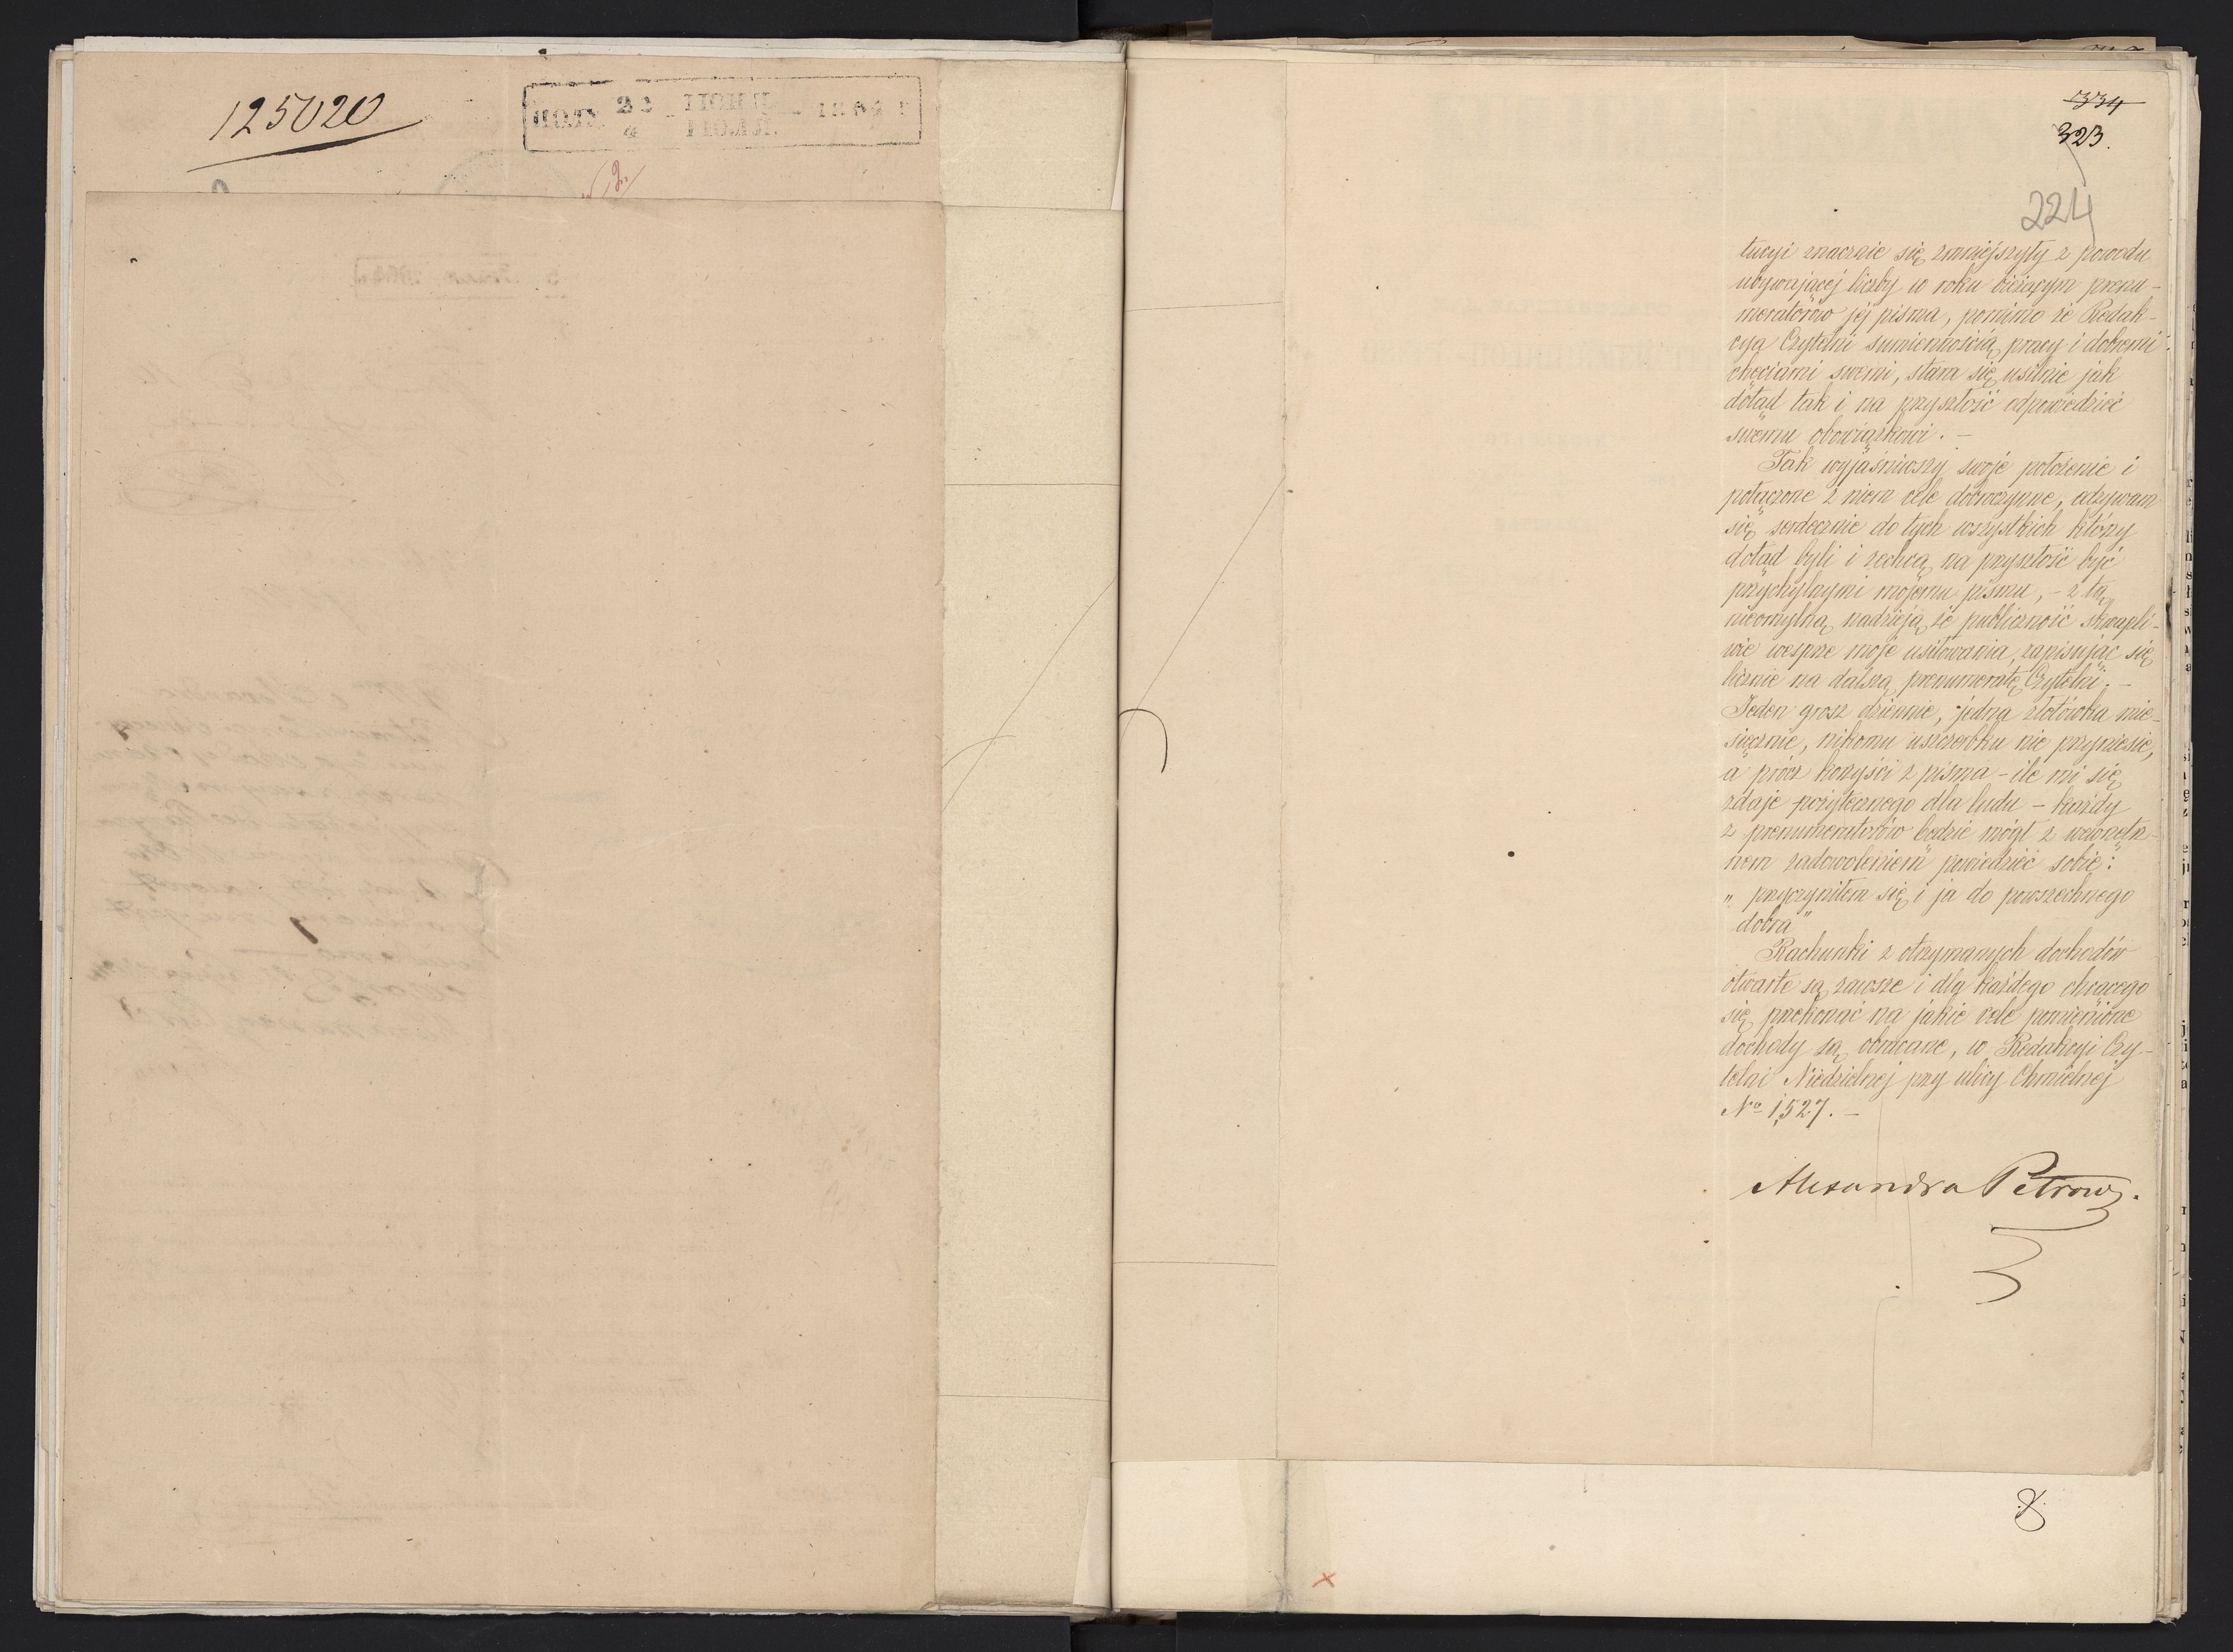 125020
334
323.
224
tucyi znacznie się zmniejszyły z powodu
ubywającej liczby w roku bieżącym prenu-
meratorów jej pisma, pomimo że Redak-
cya Czytelni sumiennością pracy i dobremi
chęciami swemi, stara się usilnie jak
dotąd tak i na przyszłość odpowiedzieć
swemu obowiązkowi. —
Tak wyjaśniwszy swoje położenie i
połączone z niem cele dobroczynne, odzywam
się serdecznie do tych wszystkich którzy
dotąd byli i zechcą na przyszłość być
przychylnymi mojemu pismu, - z tą
nieomylną nadzieją że publiczność skwapli-
wie wesprze moje usiłowania, zapisując się
licznie na dalszą prenumeratę Czytelni. —
Jeden grosz dziennie, jedna złotówka mie-
sięcznie, nikomu uszczerbku nie przyniesie,
a prócz korzyści z pisma - ile mi się
zdaje pożytecznego dla ludu - każdy
z prenumeratorów będzie mógł z wewnętrz-
nem zadowoleniem powiedzieć sobie:
„ przyczyniłem się i ja do powszechnego
dobra"
Rachunki z otrzymanych dochodów
otwarte są zawsze i dla każdego chcącego
się przekonać na jakie cele pomienione
dochody są obracane, w Redakcyi Czy-
telni Niedzielnej przy ulicy Chmielnej
No 1,527. —
Alexandra Petrow.
8